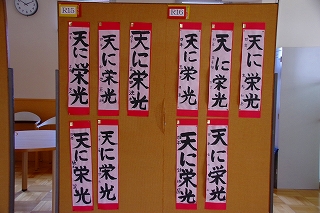 R15
R16
天に栄光
天に栄光
天に栄光
天に栄光
天に栄光
天に栄光
天に栄光
天に栄光
天に栄光
天に栄光